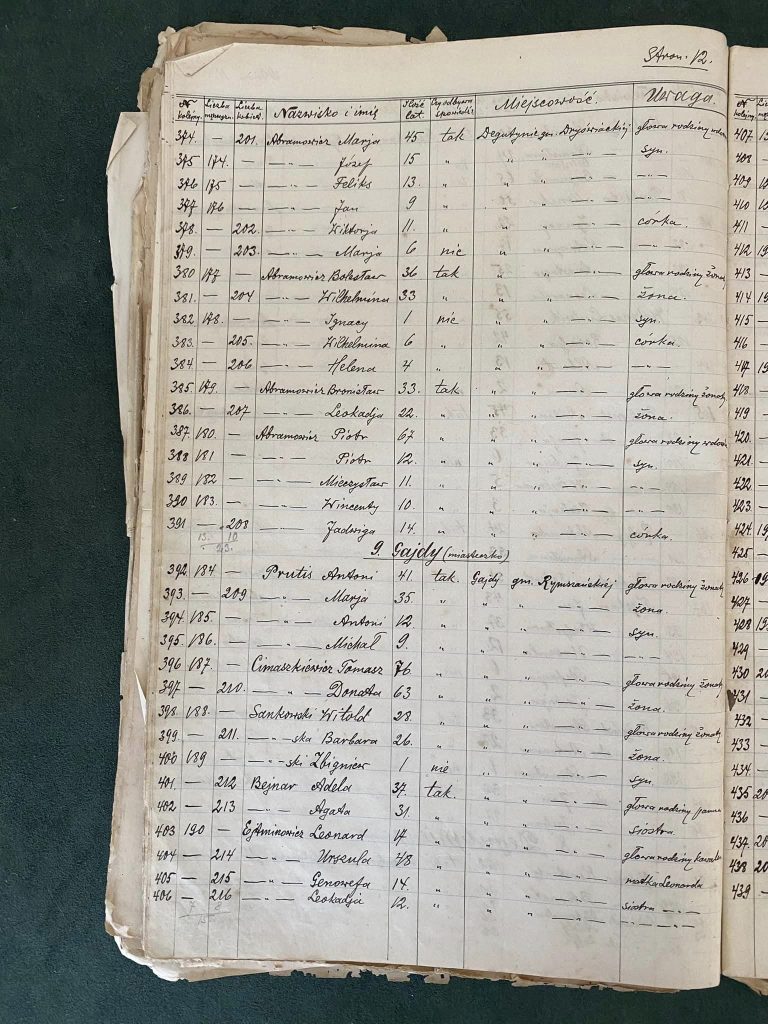 Stron. 12.
№ kolejny. Liczba mężczyzn. Liczba kobiet. Nazwisko i imię Ilość lat. Czy odbywa spowiedź Miejscowość. Uwaga.
374. 201. Abramowicz Marja 45 tak Degutynie gm. głowa rodziny wdowa
375 174. — —"— Józef 15 " " " —"— syn.
376 175 — —"— Feliks 13. " " " —"— —"—
377 176 — —"— Jan 9 " " " —"— —"—
378. — 202. —"— Wiktorja 11. " " " —"— córka.
379. — 203. —"— Marja 6 nie " " —"— —"—
380 177 — Abramowicz Bolesław 36 tak " " —"— głowa rodziny żonaty
381. — 204 —"— Wilhelmina 33 " " " —"— żona.
382 178. — —"— Ignacy 1 nie " " —"— syn.
383. — 205. —"— Wilhelmina 6 " " " —"— córka.
384. — 206 —"— Helena 4 " " " —"— —"—
385. 179. — Abramowicz Bronisław 33. tak " " —"— głowa rodziny żonaty
386. — 207 —"— Leokadja 22. " " " —"— żona.
387. 180. — Abramowicz Piotr 67 " " " —"— głowa rodziny wdowiec
388 181 — —"— Piotr 12. " " " —"— syn.
389 182 — —"— Mieczysław 11. " " " —"— —"—
390 183. — —"— Wincenty 10. " " " —"— —"—
391 — 208 —"— Jadwiga 14. " " " —"— córka.
13. 10
23.
9. Gajdy (miasteczko)
392 184 — Prutis Antoni 41. tak. Gajdy gm. Rymszańskiej głowa rodziny żonaty
393. — 209 —"— Marja 35. " " " —"— żona.
394 185. — —"— Antoni 12 " " " —"— syn.
395 186. — —"— Michał 9. " " " —"— —"—
396 187. — Cimaszkiewicz Tomasz 76 " " " —"— głowa rodziny żonaty
397 — 210. —"— Donata 63 " " " —"— żona.
398. 188. — Sankowski Witold 28. " " " —"— głowa rodziny żonaty
399. — 211. —"— ska Barbara 26. " " " —"— żona.
400 189 — —"— ski Zbigniew 1 nie " " —"— syn.
401. — 212 Bejnar Adela 37 tak. " " —"— głowa rodziny panna
402 — 213 —"— Agata 31. " " " —"— siostra.
403 190 — Ejtminowicz Leonard 17 " " " —"— głowa rodziny kawaler
404 — 214 —"— Urszula 48 " " " —"— matka Leonarda
405 — 215 —"— Genowefa 14. " " " —"— siostra —"—
406 — 216 —"— Leokadja 12. " " " —"—
№ kolejny.
407
408
409
410
411
412
413
414
415
416
417
418.
419
420.
421.
422.
423.
424.
425
426
427
428
429
430
431
432
433
434
435
436
437.
438
439